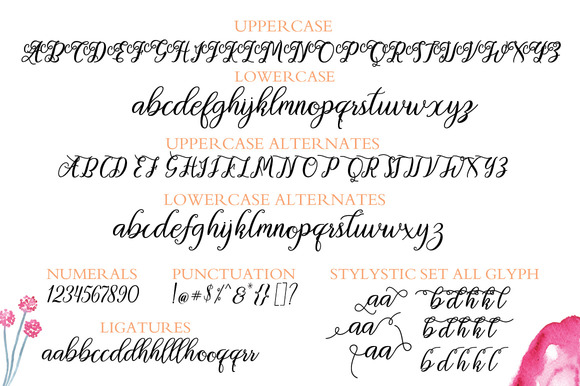 UPPERCASE
ABCDEFGHIJKLMNOPQRSTUVWXYZ
LOWERCASE
abcdefghijklmnopqrstuvwxyz
UPPERCASE ALTERNATES
ABCDEFGHIJKLMNOPQRSTUVWXYZ
LOWERCASE ALTERNATES
abcdefghijklmnopqrstuvwxyz
NUMERALS
1234567890
PUNCTUATION
!@#$%^&*{}[]?
LIGATURES
aabbccddhhllllhooqqrr
STYLYSTIC SET ALL GLYPH
aa bdhkl
aa bdhkl
aa bdhkl